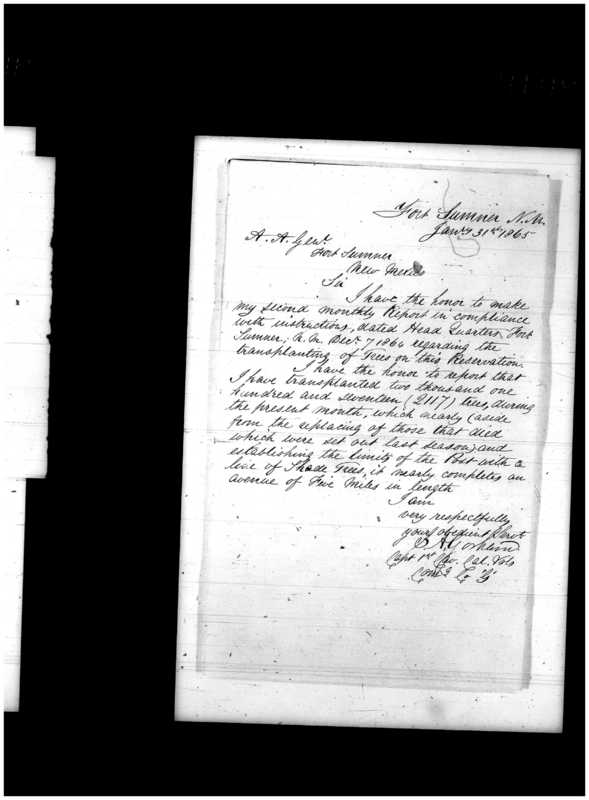 Fort Sumner N.M.
Jany 31st 1865
A. A. Genl.
Fort Sumner
New Mexico
Sir
I have the honor to make
my second monthly Report in compliance
with instructions, dated Head Quarters Fort
Sumner, N.M. Decr 7 1864 regarding the
transplanting of Trees on this Reservation.
I have the honor to report that
I have transplanted two thousand one
hundred and seventeen (2117) trees, during
the present month, which nearly (aside
from the replacing of those that died
which were set out last season) and
establishing the limits of the Post with a
line of Shade Trees, it nearly completes an
avenue of Five Miles in length
I am
very respectfully
your obedient Servt
Capt 1st Cav. Cal. Vols
Comdg Co "G"